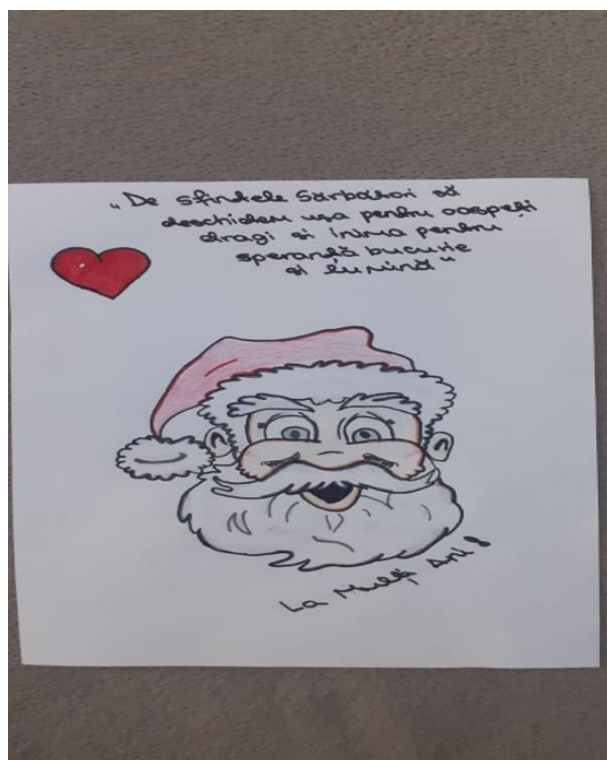 „De sfintele Sărbători să
deschidem ușa pentru oaspeți
dragi și inima pentru
speranță bucurie
și lumină"
La Mulți Ani!